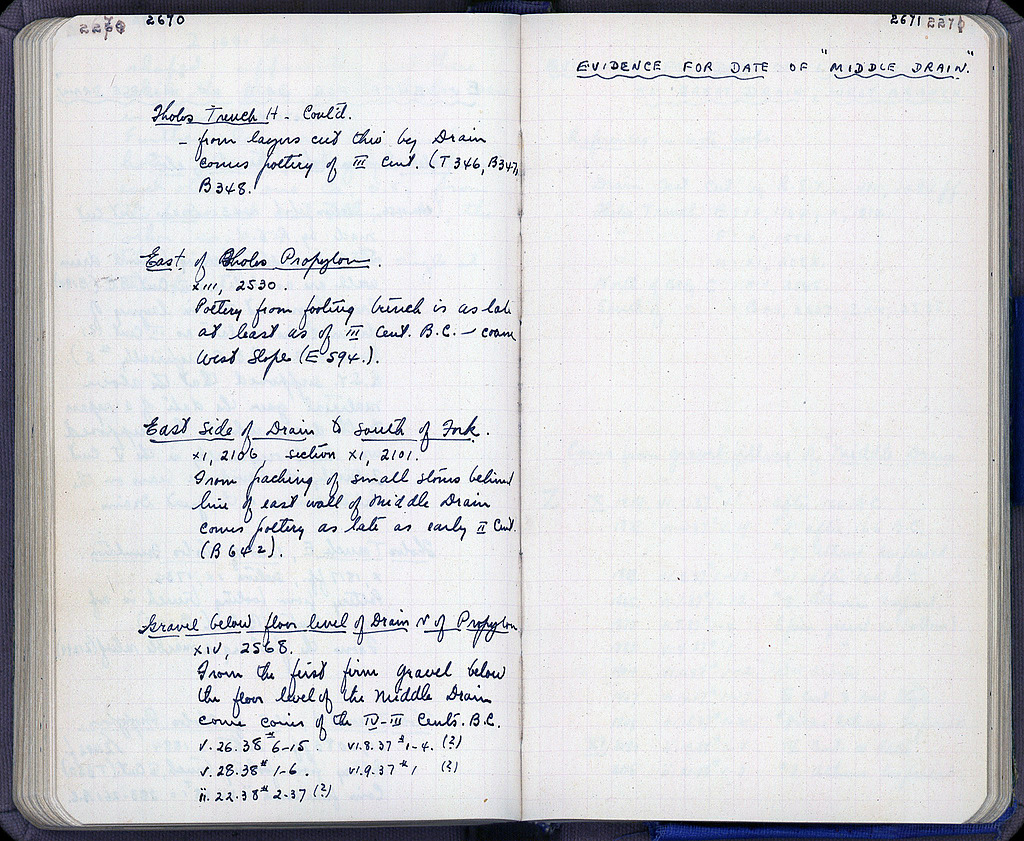 2670
Tholos Trench H - Cont'd.
- from layers cut thro by Drain
comes pottery of III Cent. (T 346, B347,
B348.
East of Tholos Propylon.
XIII, 2530.
Pottery from footing trench is as late
at least as of III Cent. B.C. - coarse
West Slope (E 594.).
East Side of Drain to South of Fork.
XI, 2106, section XI, 2101.
From packing of small stones behind
line of east wall of Middle Drain
comes pottery as late as early II Cent.
(B 642).
Gravel below floor level of Drain N of Propylon
XIV, 2568.
From the first firm gravel below
the floor level of the Middle Drain
come coins of the IV-III Cents. B.C.
V.26.38 # 6-15 VI.8.37 # 1-4. (?)
V.28.38 # 1-6. VI.9.37 # 1 (?)
ii.22.38 # 2-37 (?)
2671 2271
EVIDENCE FOR DATE OF "MIDDLE DRAIN."